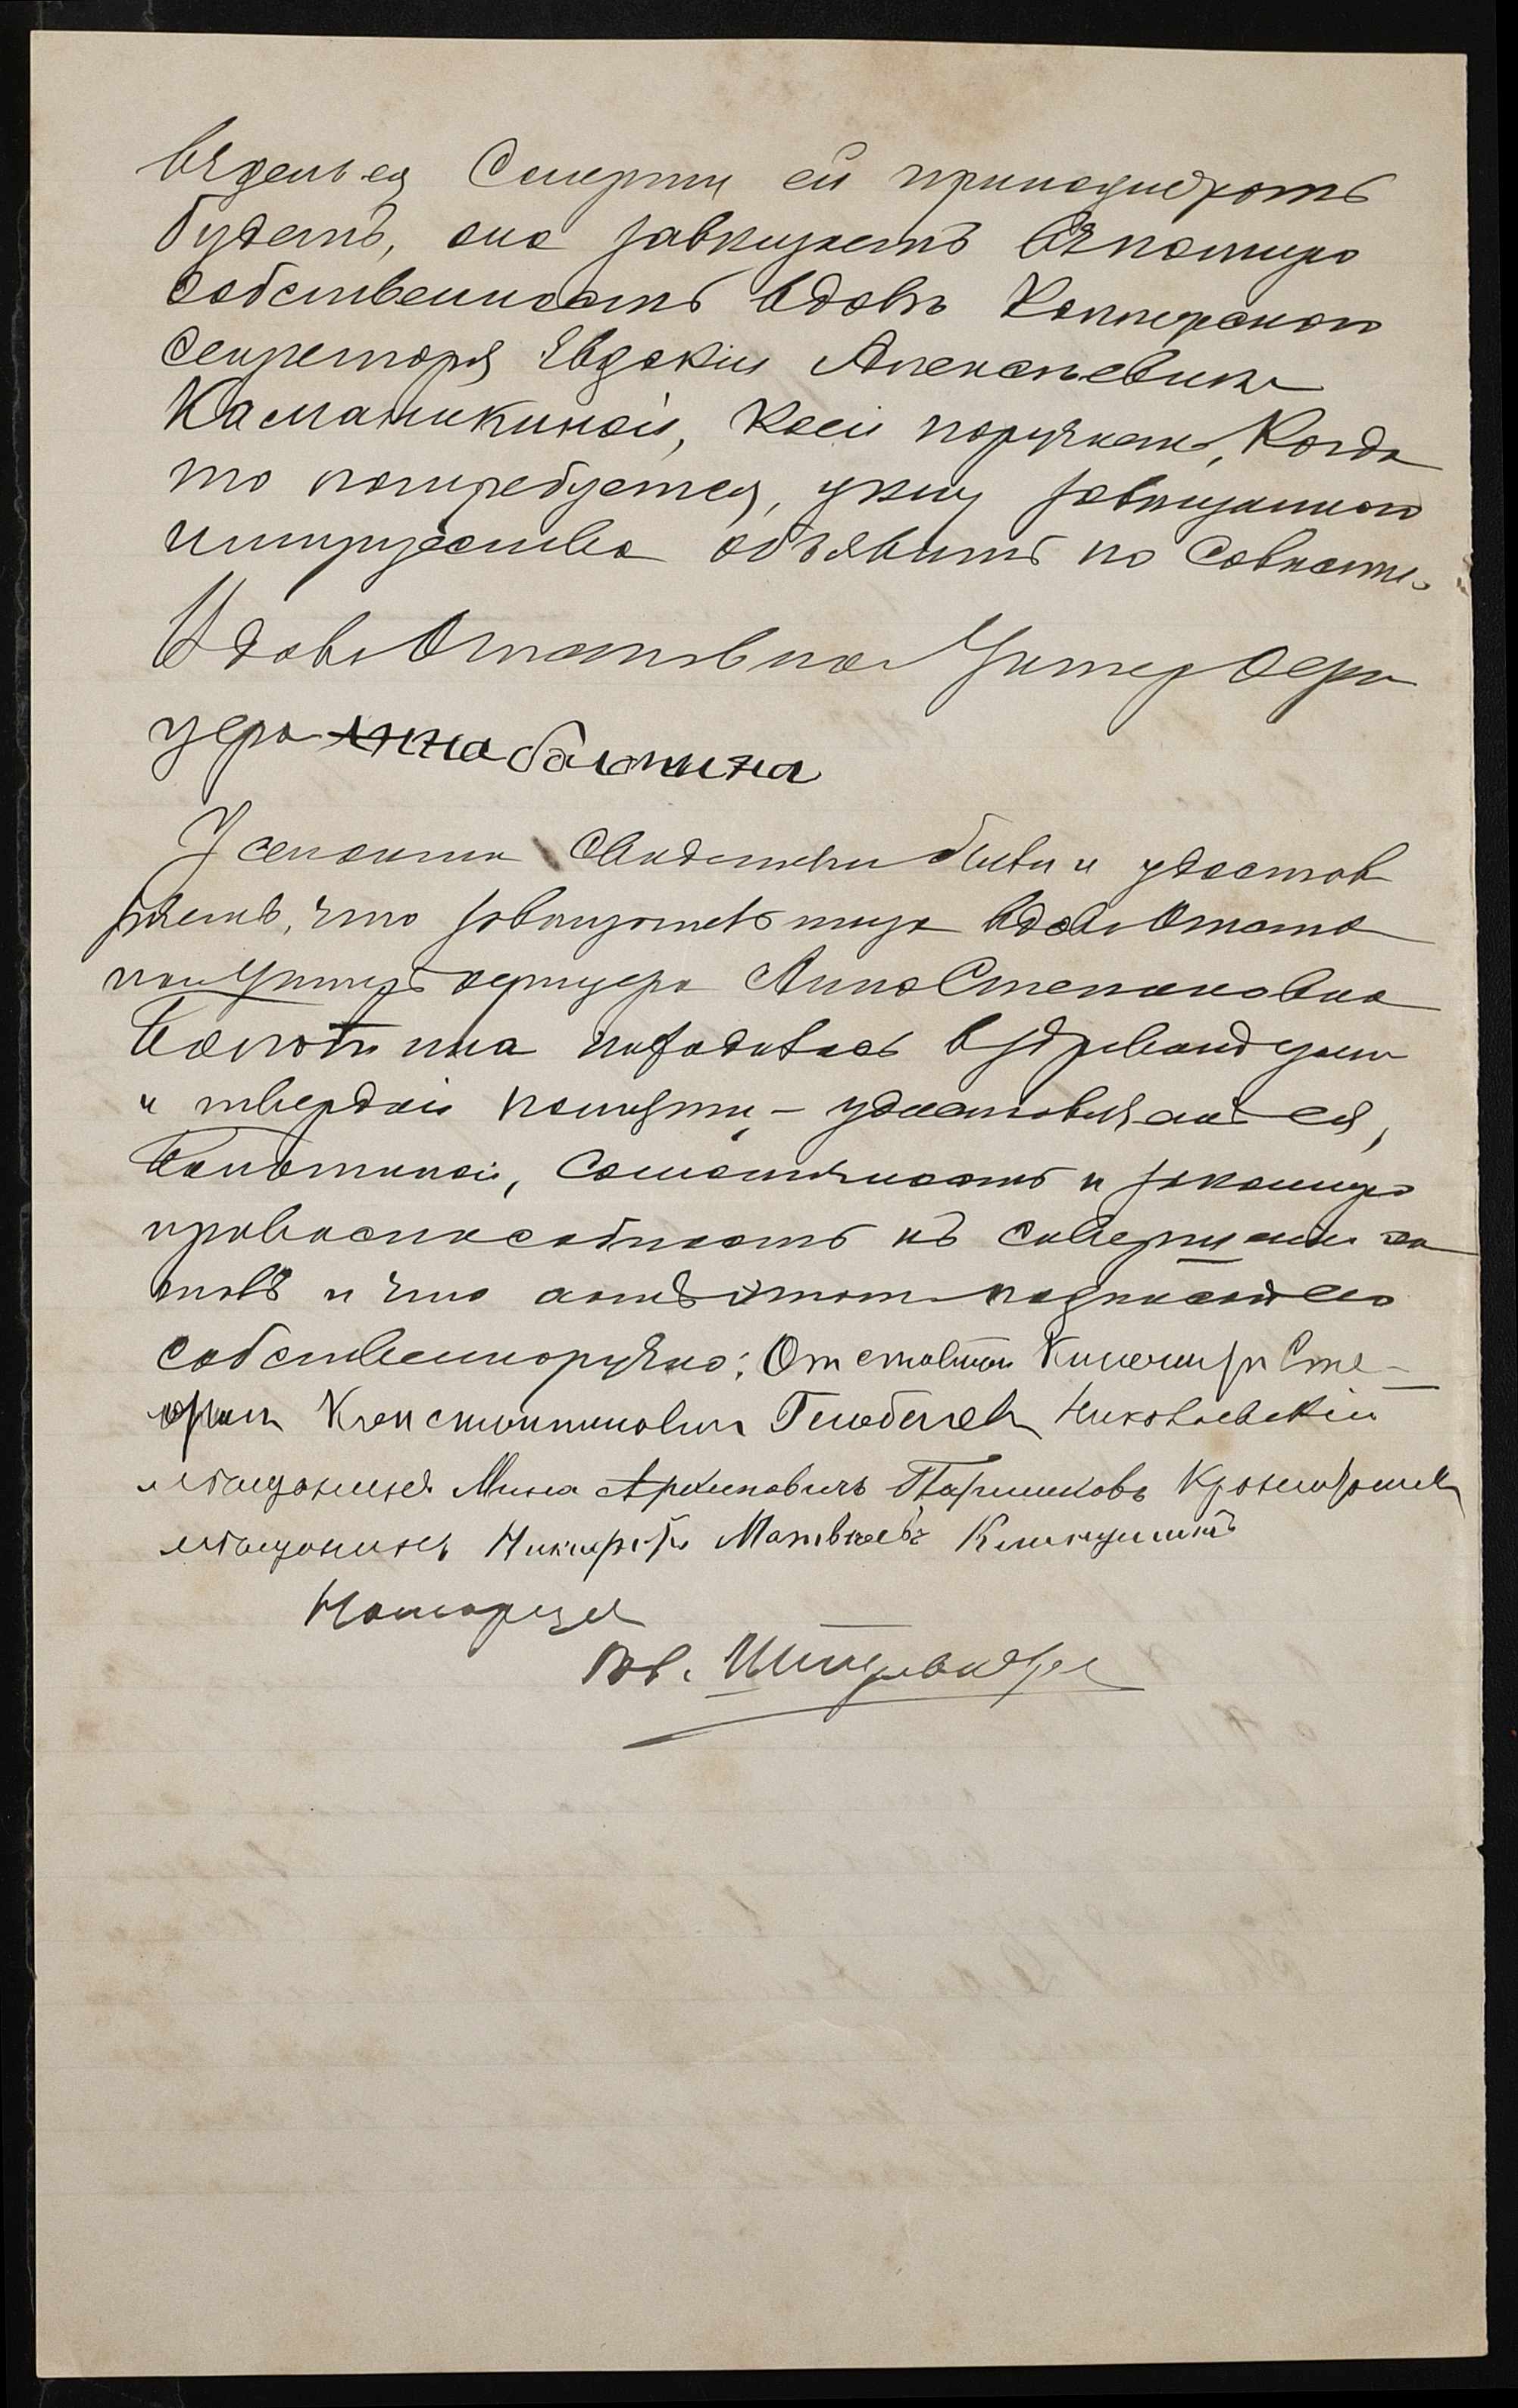 въ день ея смерти ей принадлежать
будетъ, она завѣщаетъ въ полную
собственность вдовѣ Коллежскаго
Секретаря Евдокіи Алексѣевнѣ
Каманикиной, коей поручаетъ, когда
то потребуется, цѣну завѣщаннаго
имущества объявить по совѣсти.
Вдова Отставнаго Унтеръ Офи
цера Анна Болотина
У сего акта свидѣтелями были и удостов
ряемъ, что завѣщательница вдова Отстав
наго Унтеръ офицера Анна Степановна
Болотина находилась въ здравомъ умѣ
и твердой памяти, – удостовѣряемъ ея,
Болотиной, самоличность и законную
правоспособность къ совершенію ак
товъ и что актъ этотъ подписанъ ею
собственноручно: Отставной
Константиновичъ Николаевскій
мѣщанинъ Мина Архиповичъ
мѣщанинъ Никифоръ Матвѣевъ
Нотаріусъ